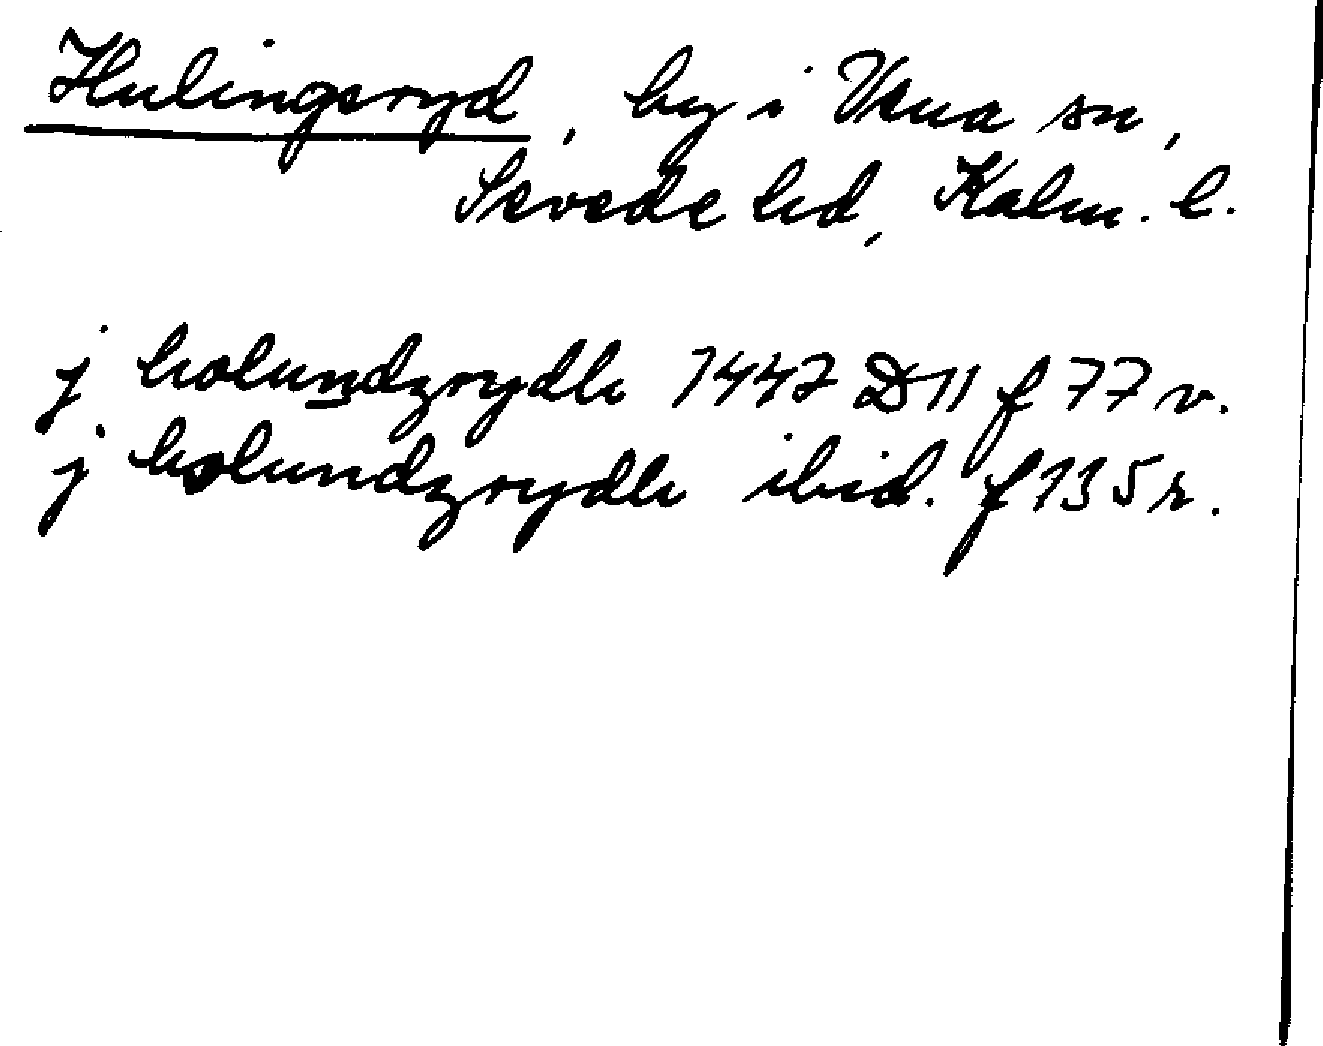 Hulingsryd, by i Vena sn,
Sevede hd, Kalm. l.
j holundzrydh 1447 D 11 f 77 v.
j holundzrydh ibid. f 135 r.